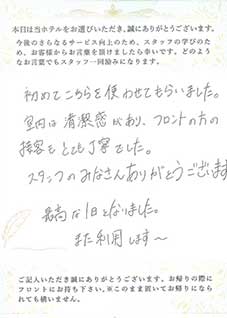 本日は当ホテルをお選びいただき、誠にありがとうございます。
今後のさらなるサービス向上のため、スタッフの学びのた
め、お客様からお言葉を頂けましたら幸いです。どのよう
なお言葉でもスタッフ一同励みになります。
初めてこちらを使わせてもらいました。
室内は清潔感があり、フロントの方の
接客もとても丁寧でした。
スタッフのみなさんありがとうございます
最高な1日となりました。
また利用します〜
ご記入いただき誠にありがとうございます。お帰りの際に
フロントにお持ち下さい。※このまま置いてお帰りになら
れても構いません。